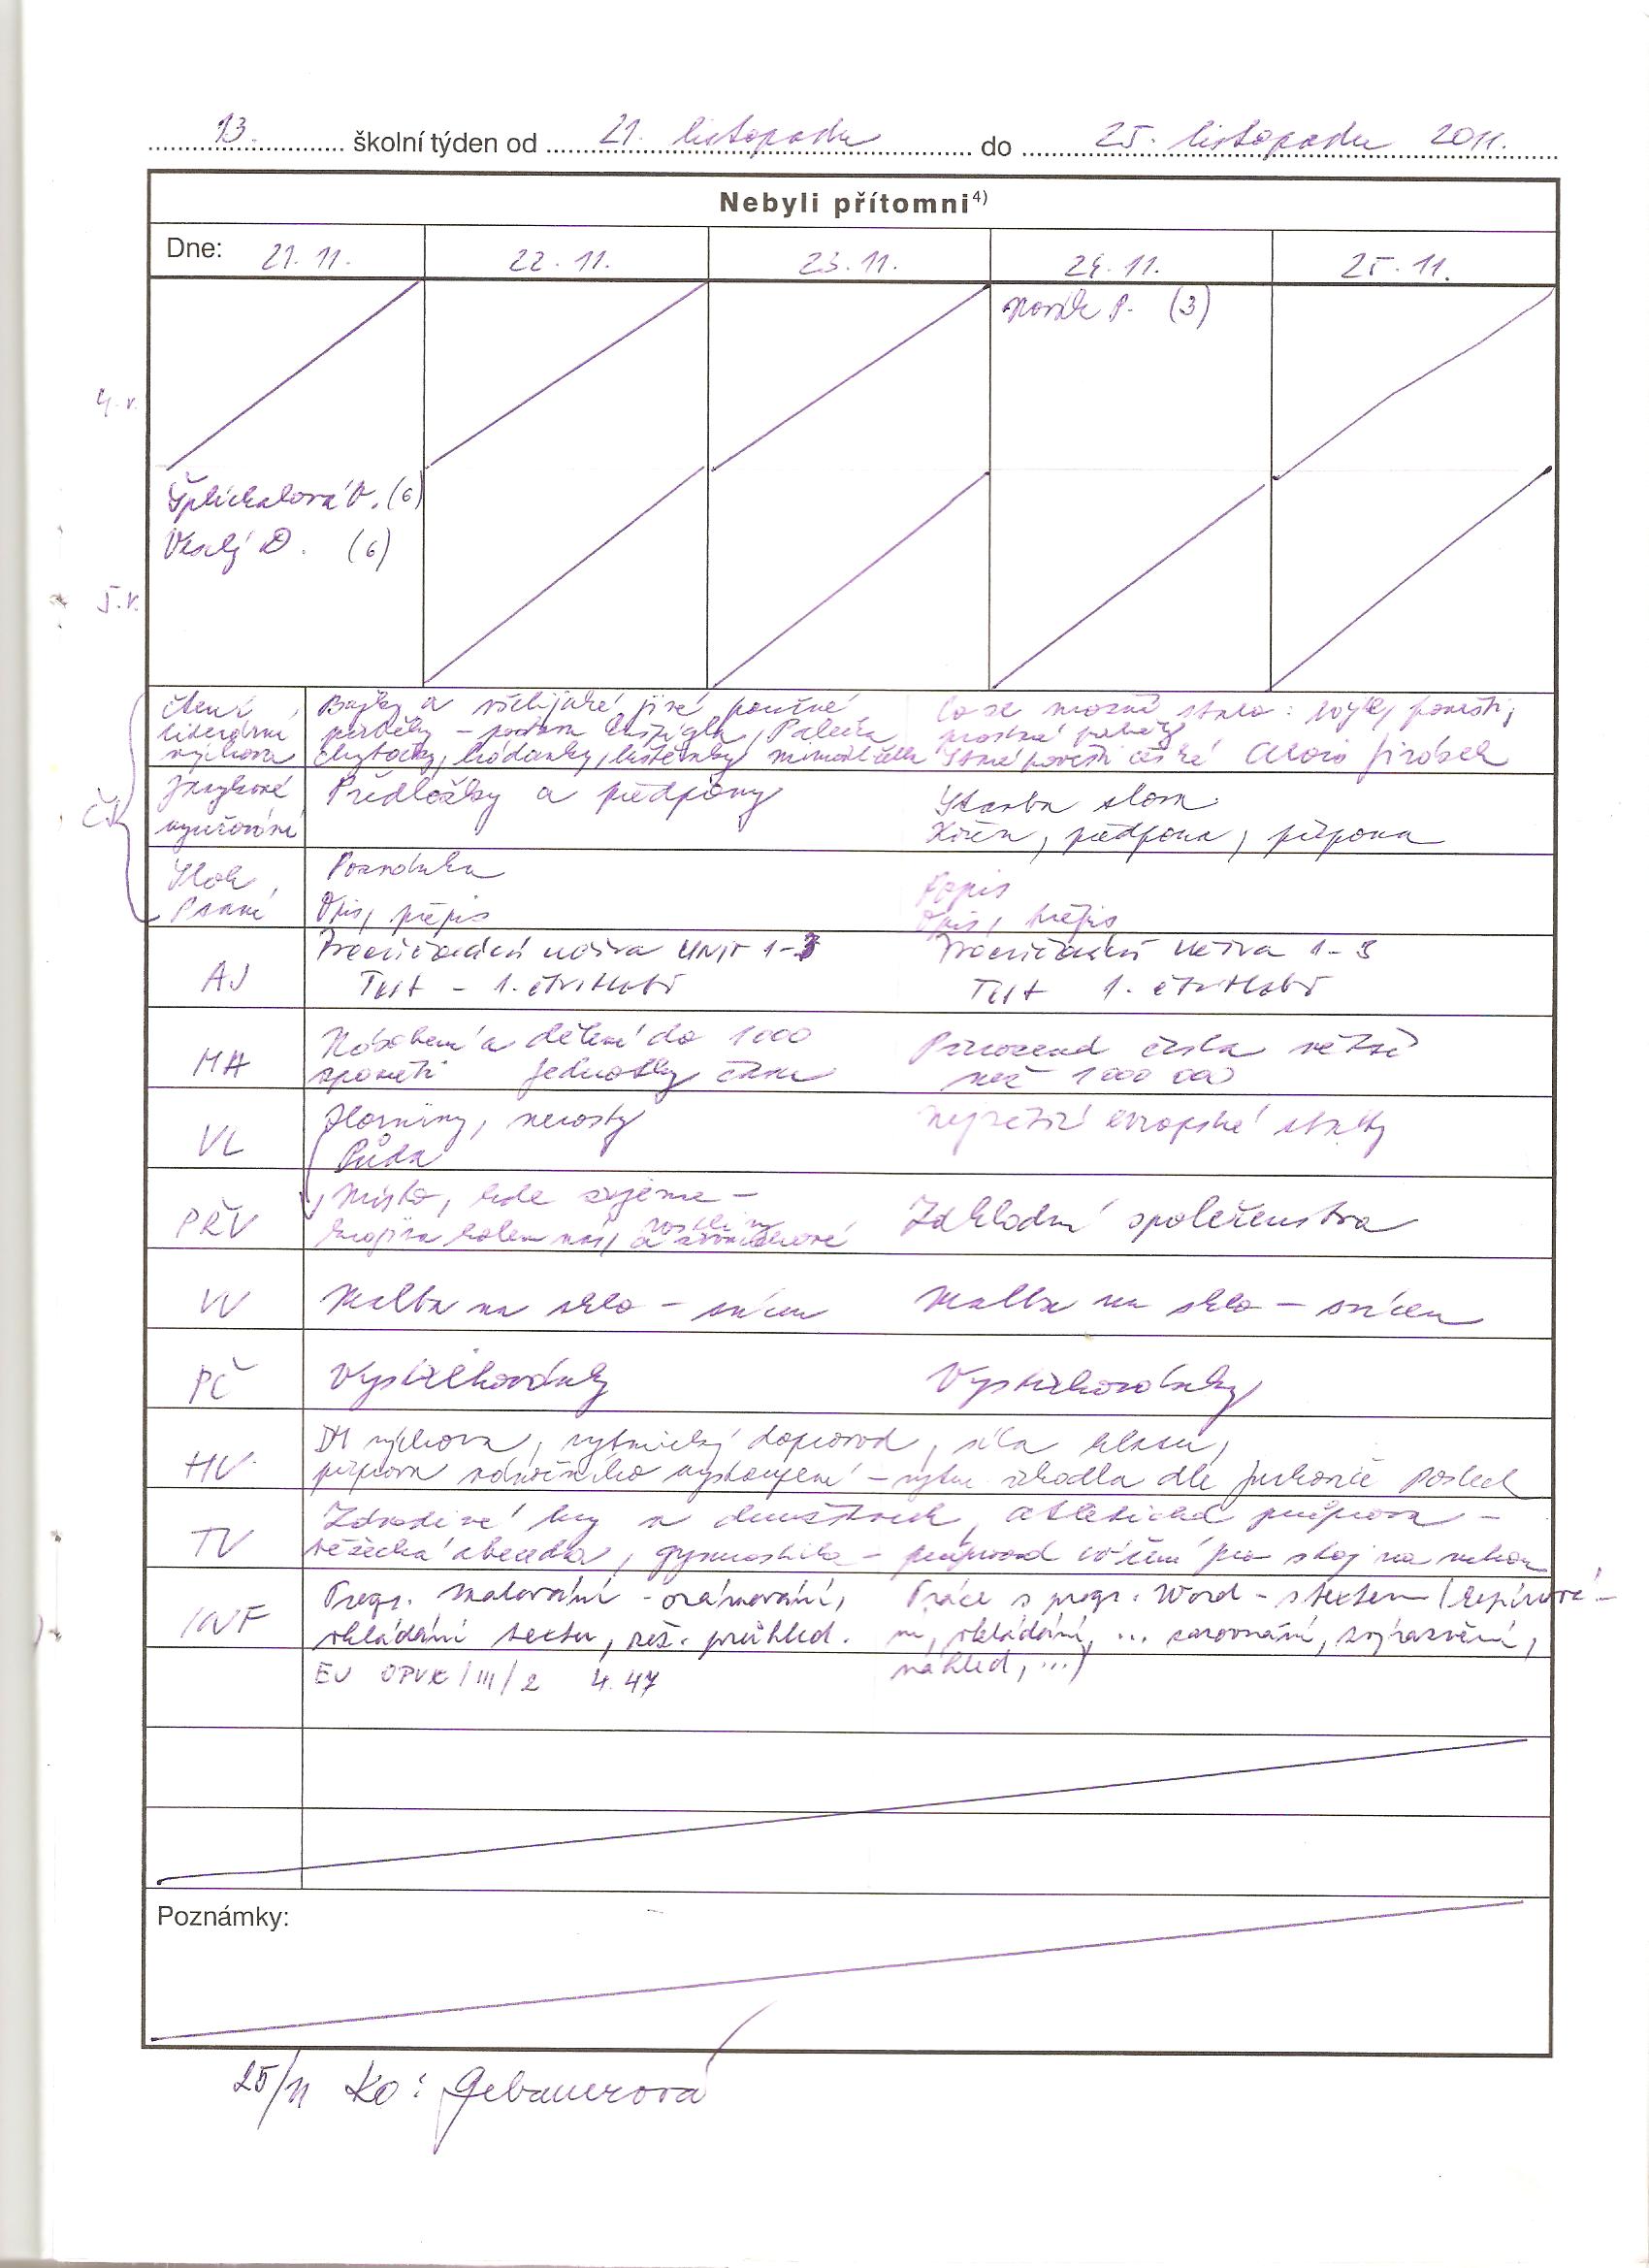 13. školní týden od 21. listopadu do 25. listopadu 2011.
Nebyli přítomni4)
Dne: 21. 11. 22. 11. 23. 11. 24. 11. 25. 11.
Novák P. (3)
4. r.
Šplíchalová V. (6)
Veselý D. (6)
5. r.
ČJ
Čtení, literární výchova
Bajky a všelijaké jiné poučné
příběhy – postava Enšpígla, Palečka
chytačky, hádanky,
Co se možná stalo: pověsti,
Staré pověsti české Alois Jirásek
Jazykové vyučování
Předložky a předpony
Stavba slova
Kořen, předpona, přípona
Sloh, Psaní
Pozvánka
Opis, přepis
Popis
Opis, přepis
AJ
Procvičování učiva UNIT 1-3
Test – 1. čtvrtletí
Procvičování učiva 1-3
Test 1. čtvrtletí
MA
Násobení a dělení do 1000
zpaměti Jednotky času
Přirozená čísla větší
než 1 000 000
VL
Horniny, nerosty
Půda
Největší evropské státy
PŘV
Místo, kde žijeme –
krajina kolem nás, rostliny
Základní společenstva
VV
Malba na sklo – svícen
Malba na sklo – svícen
PČ
Vystřihovánky
Vystřihovánky
HV
výchova, rytmický doprovod, síla hlasu,
příprava vánočního vystoupení – divadla dle poslech
TV
Závodivé hry v družstvech, atletická příprava –
běžecká abeceda, gymnastika – průpravná cvičení pro stoj na rukou
INF
Progr. Malování – orámování,
vkládání textu, růz. průhled.
Práce s progr. Word – s textem (kopírová-
ní, vkládání, ... zarovnání, zvýraznění,
náhled, ...)
EU OPVK/III/2 4. 47
Poznámky:
25/11 Ko: Gebauerová